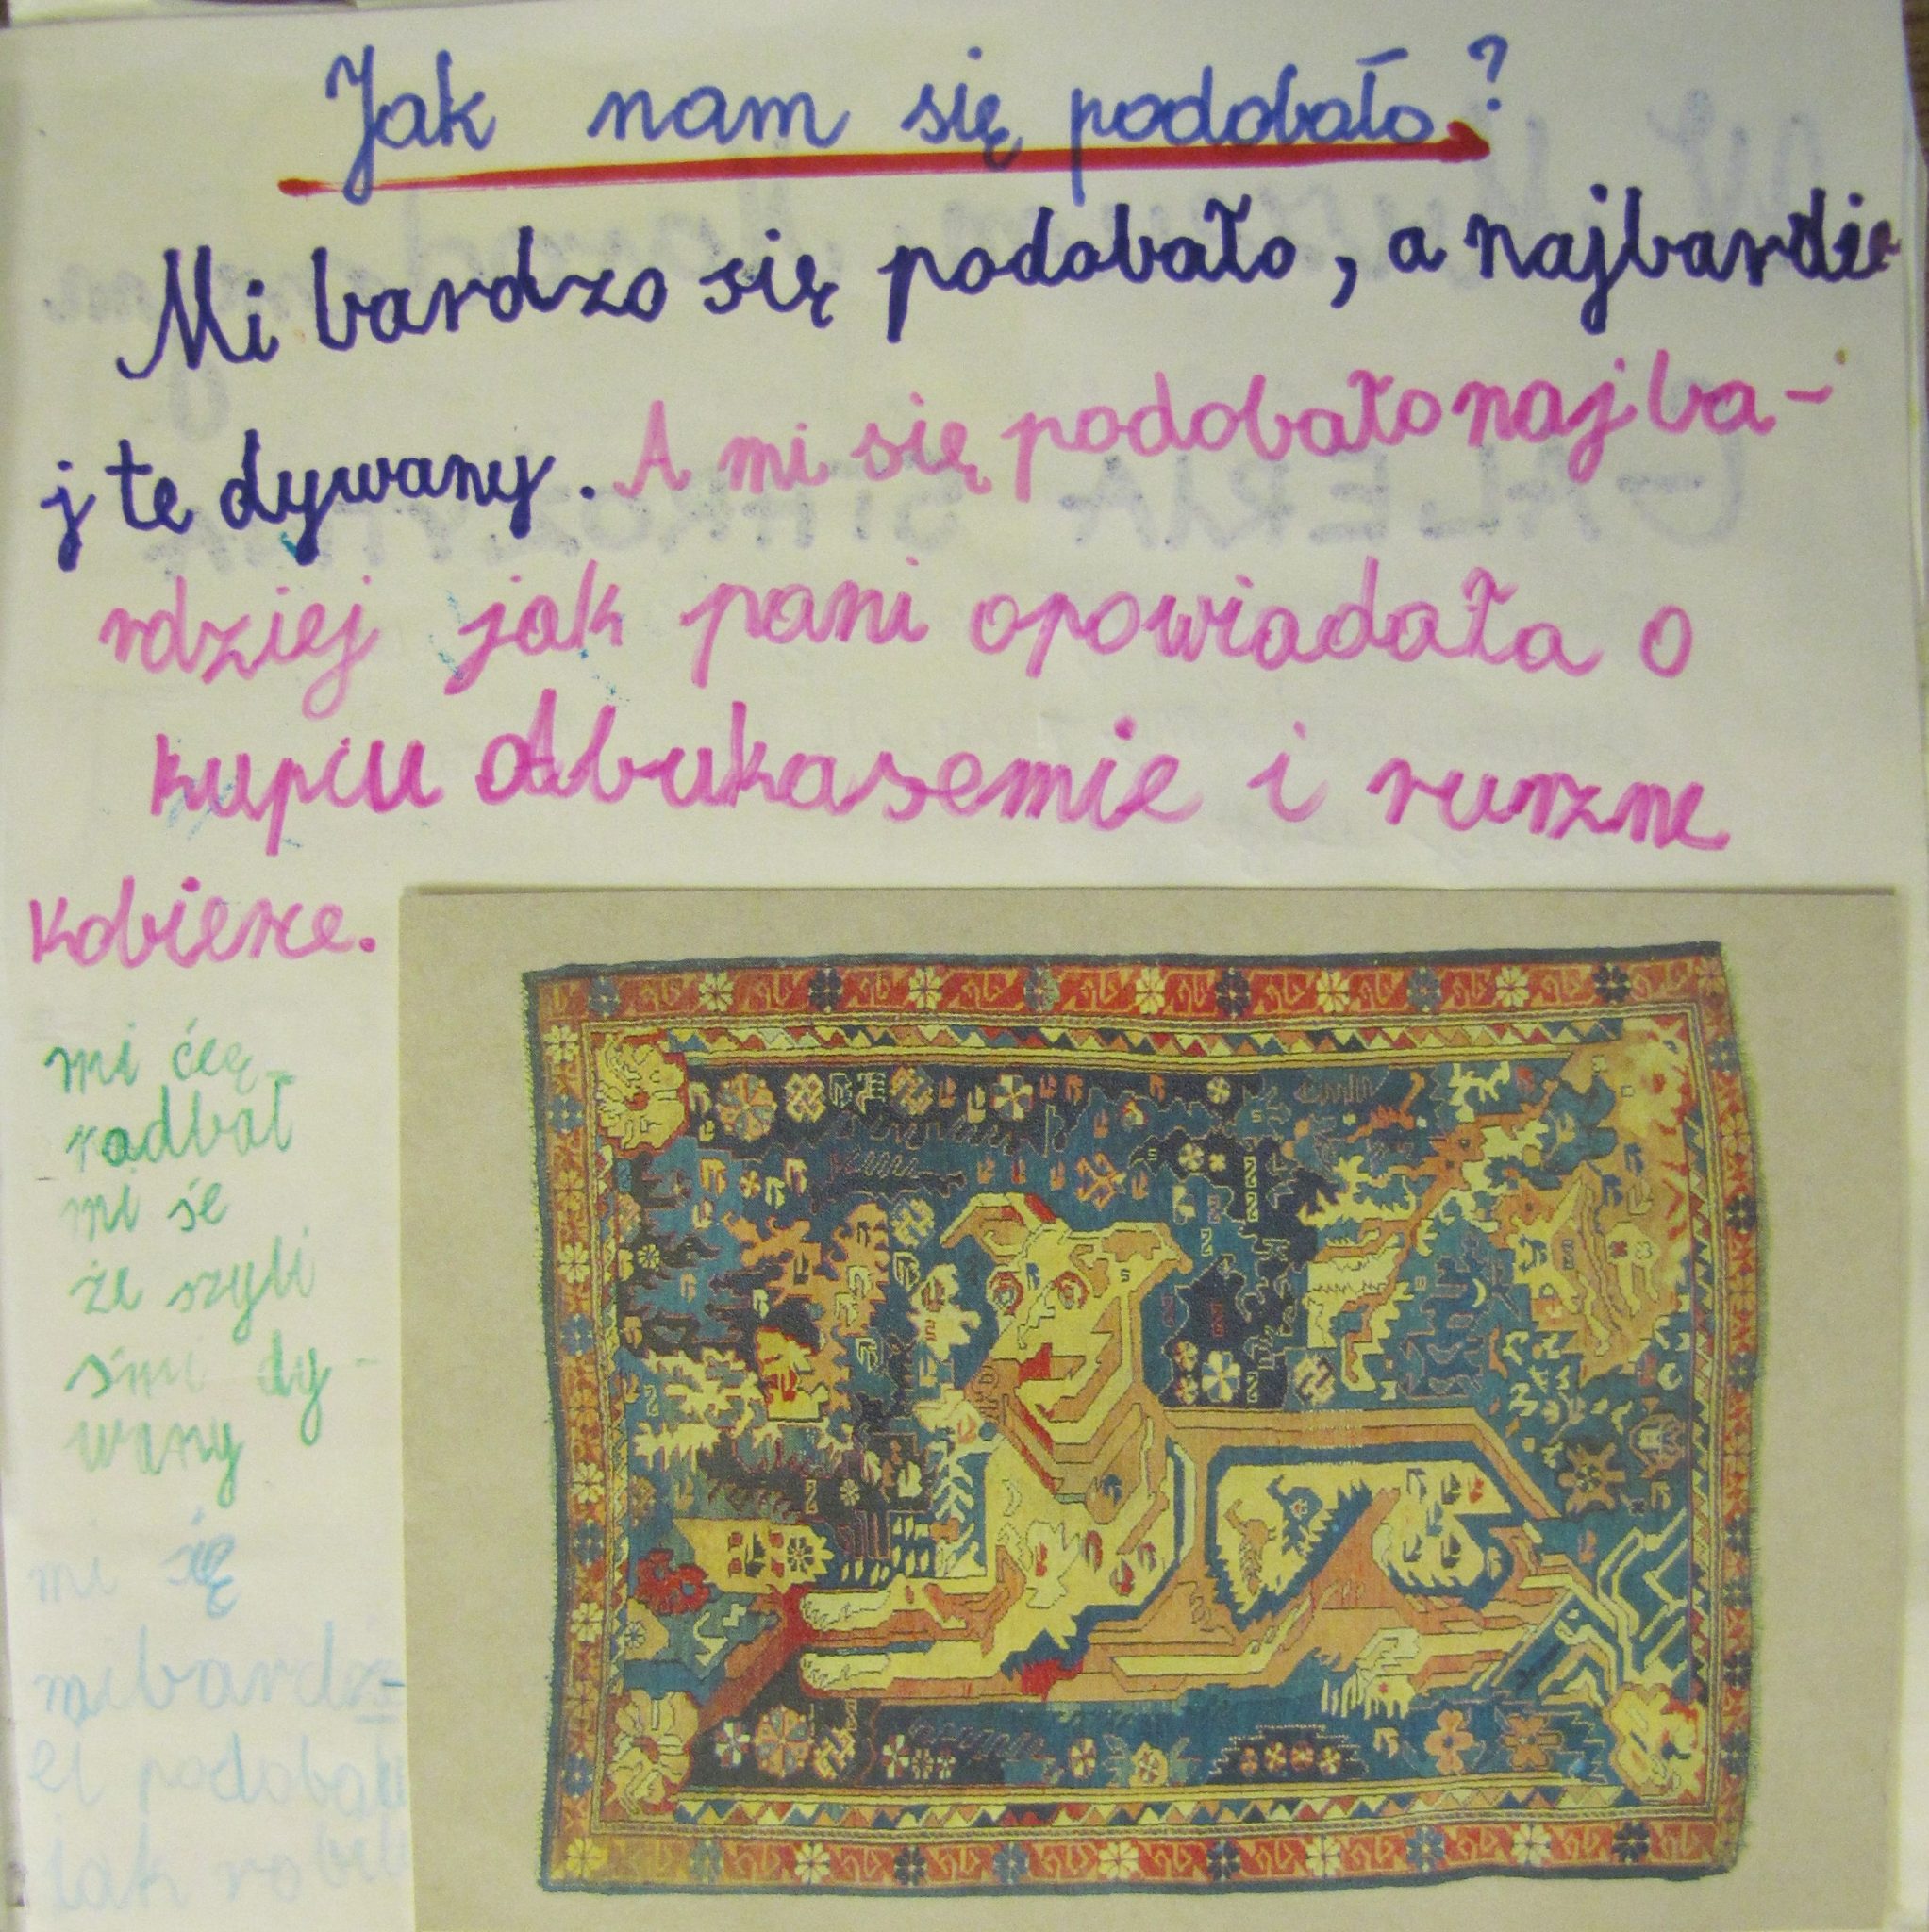 Jak nam się podobało?
Mi bardzo się podobało, a najbardzie
j te dywany. A mi się podobało najba-
rdziej jak pani opowiadała o
kupcu Abukasemie i rurzne
kobierce.
mi
mi śe
że szyli
śmi dy-
wany
mi się
mi bardz-
ei podobało
jak robili